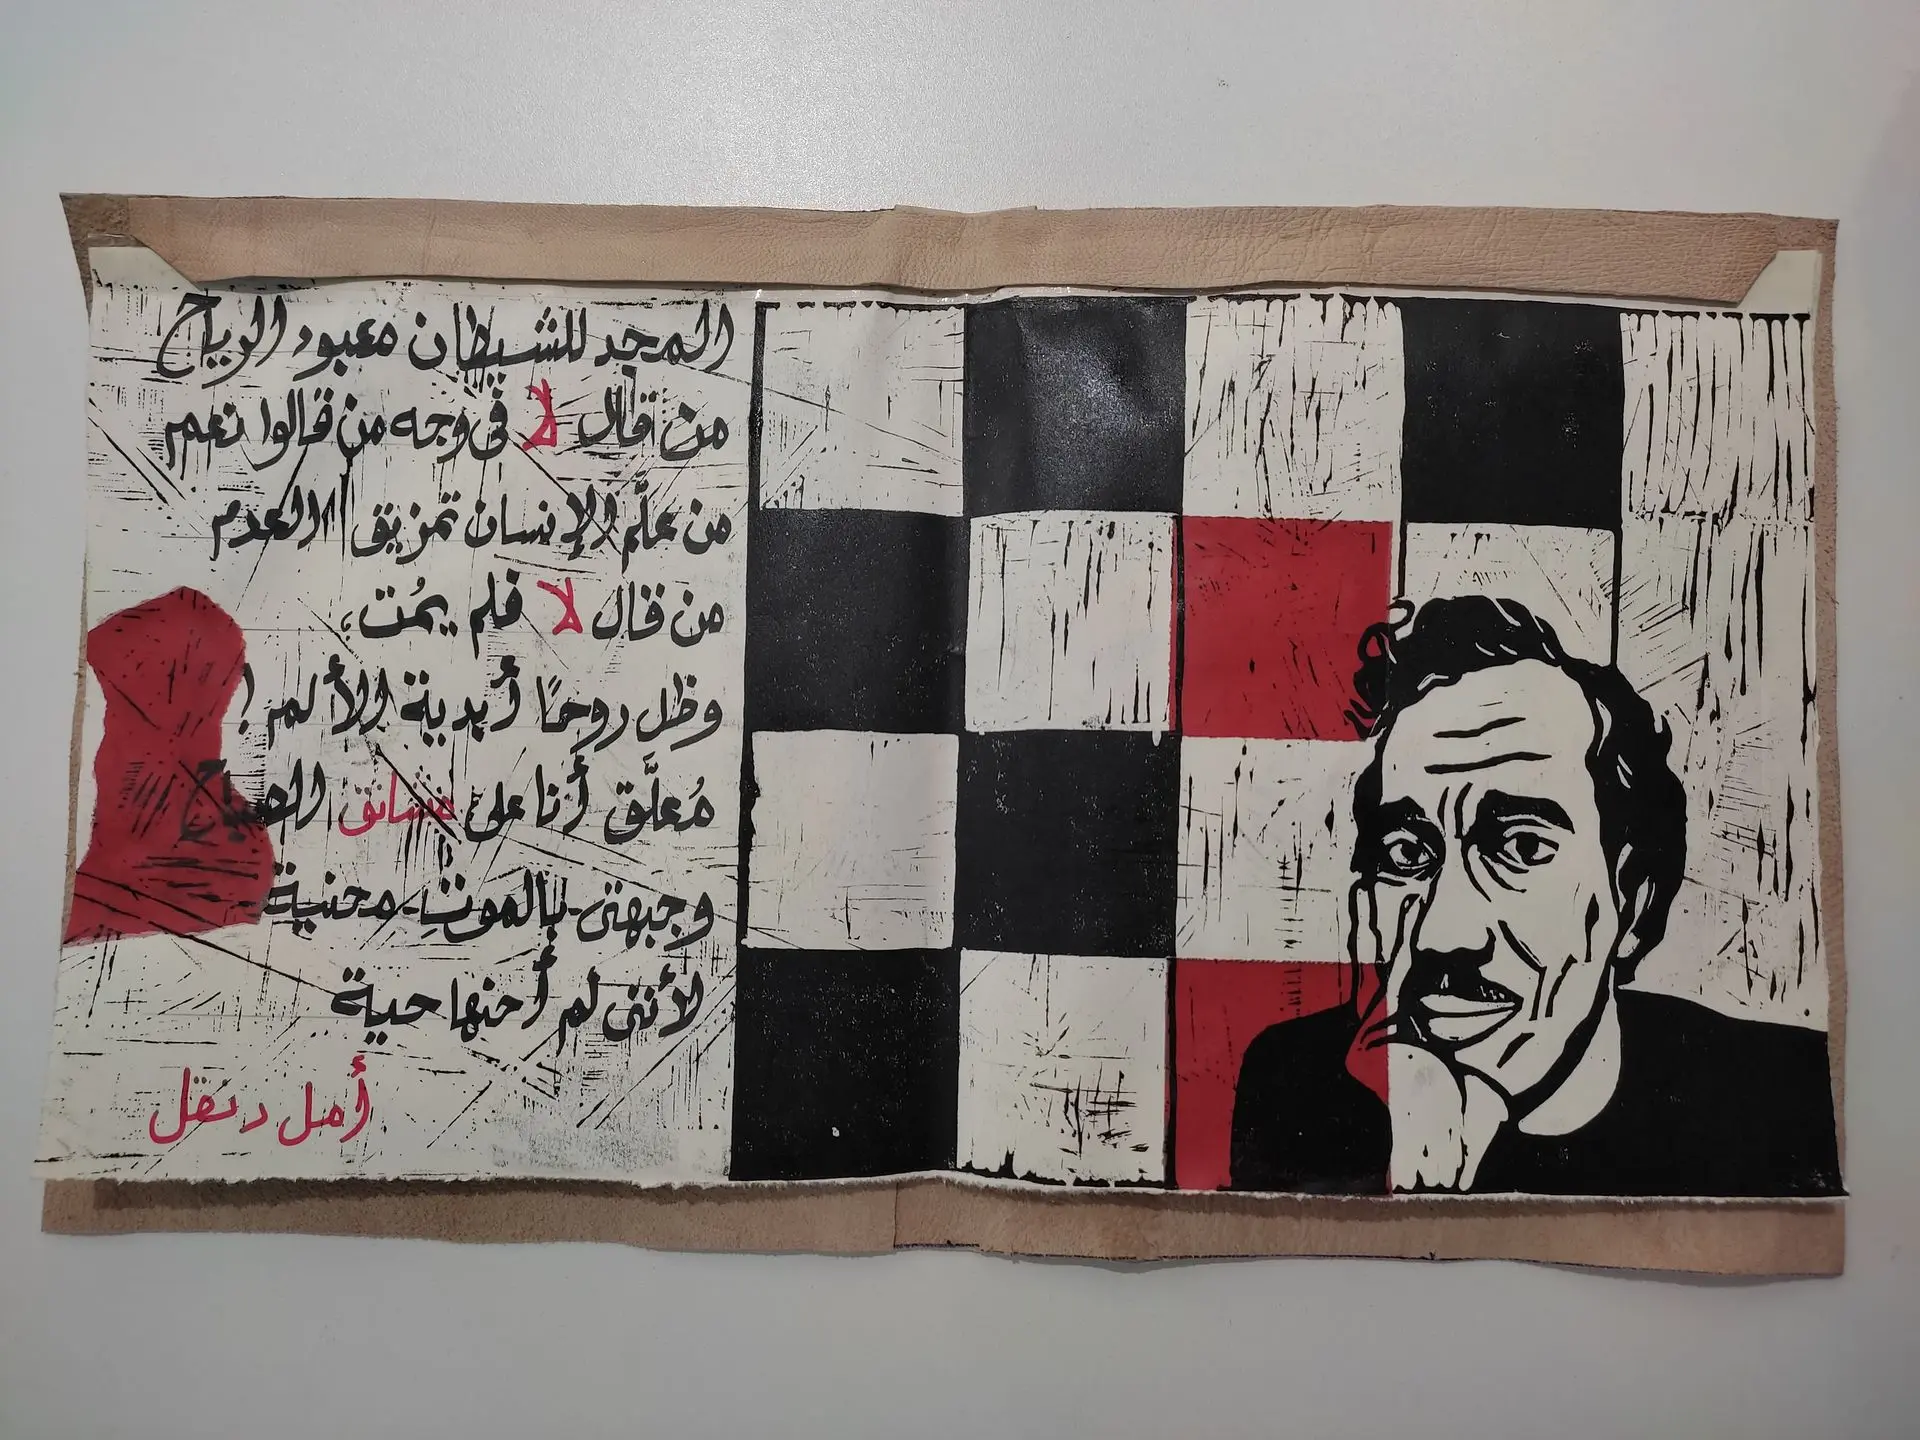 المجد للشيطان معبود الرياح
من قال لا في وجه من قالوا نعم
من علَّم الإنسان تمزيق العدم
من قال لا فلم يمُت،
وظل روحًا أبدية الألم!
مُعلَّق أنا على مشانق الصباح
وجبهتي - بالموتِ - محنية
لأنني لم أحنها حية
أمل دنقل